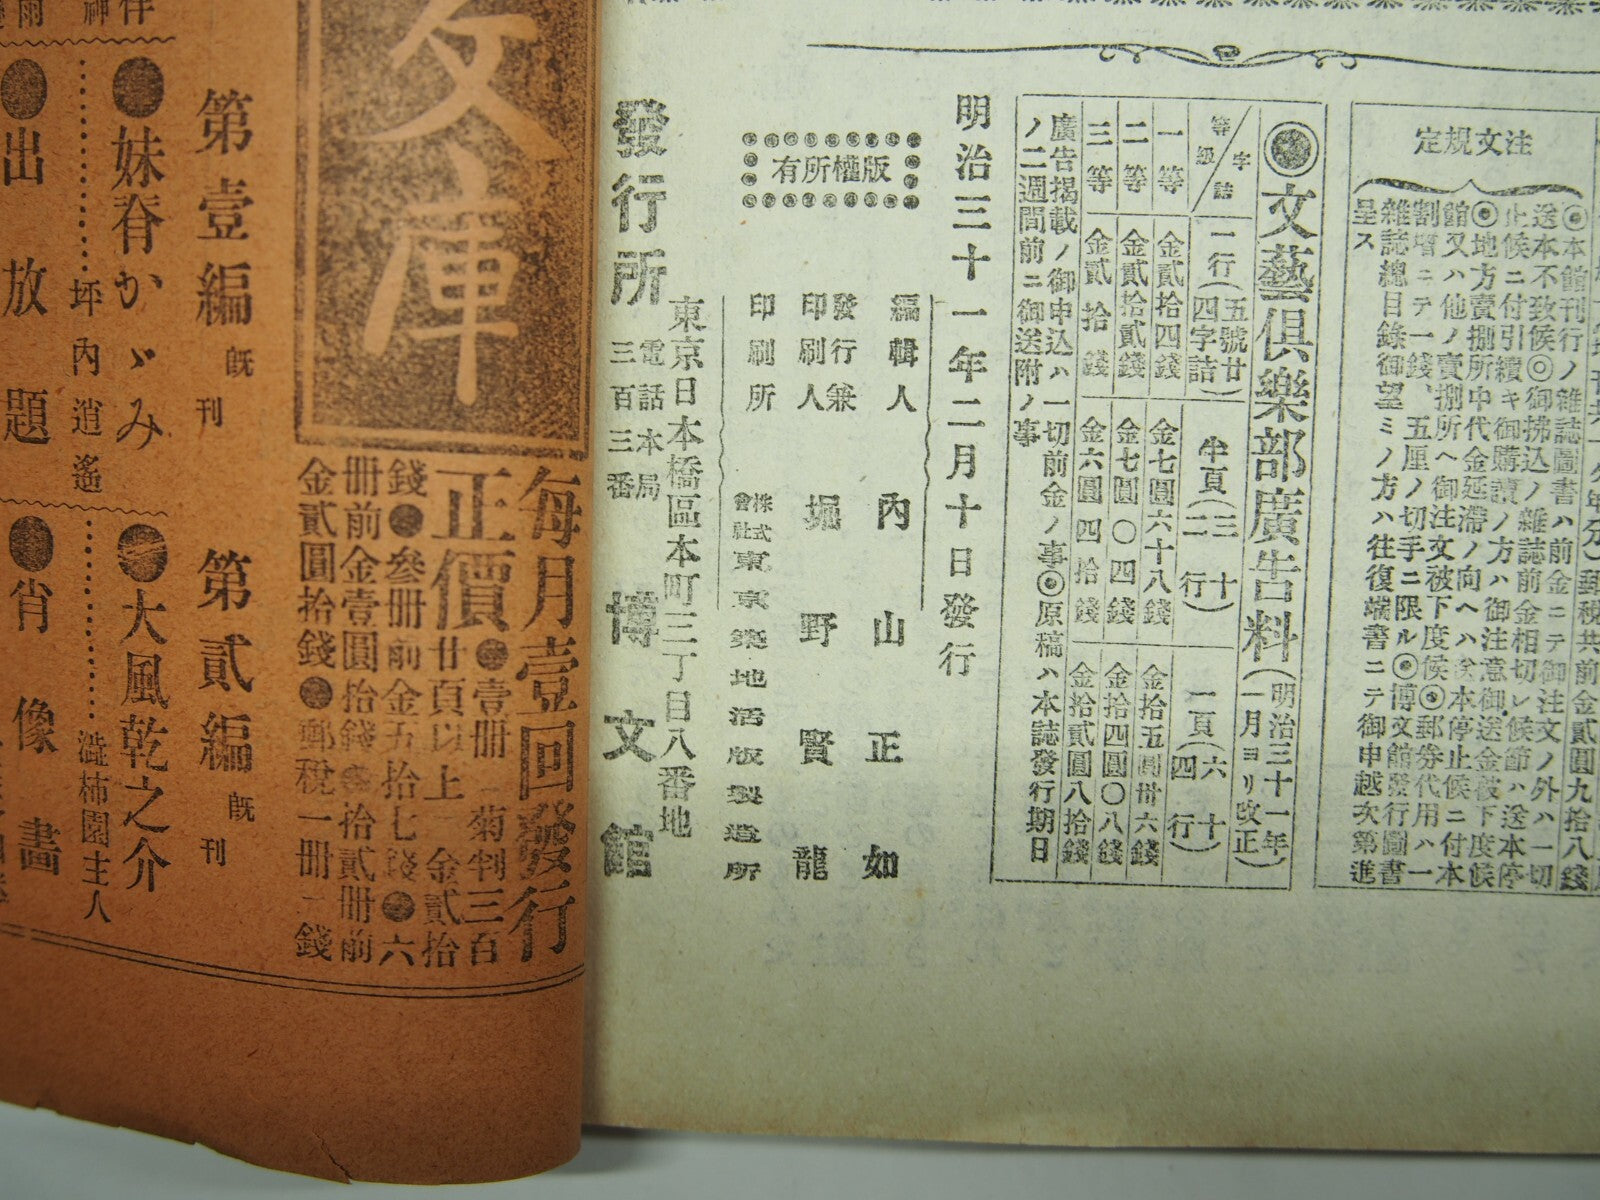 注文規定
◎本館刊行ノ雜誌圖書ハ前金ニテ御注文ノ外ハ一切
送本不致候◎御拂込ノ雜誌前金相切レ候節ハ送本停
止候ニ付引續キ御購讀ノ方ハ御注意御送金被下度候
◎地方賣捌所中代金延滯ノ向ヘハ送本停止候ニ付本
館又ハ他ノ賣捌所ヘ御注文被下度候◎郵券代用ハ一
割增ニテ一錢、五厘ノ切手ニ限ル◎博文館發行圖書
雜誌總目錄御望ミノ方ハ往復端書ニテ御申越次第進
呈ス
◎文藝俱樂部廣告料(明治三十一年一月ヨリ改正)
等級/字詰 一行(五號廿四字詰) 半頁(三十二行) 一頁(六十四行)
一等 金貳拾四錢 金七圓六十八錢 金拾五圓卅六錢
二等 金貳拾貳錢 金七圓〇四錢 金拾四圓〇八錢
三等 金貳拾錢 金六圓四拾錢 金拾貳圓八拾錢
廣告揭載ノ御申込ハ一切前金ノ事◎原稿ハ本誌發行期日
ノ二週間前ニ御送附ノ事
明治三十一年二月十日發行
版權所有
編輯人 內山正如
發行兼印刷人 堀野賢龍
印刷所 株式會社東京築地活版製造所
東京日本橋區本町三丁目八番地
發行所 博文館
電話本局
三百三番
文庫
每月壹回發行
正價
壹册ニ菊判三百
廿頁以上ニ金貳拾
錢●參册前金五拾七錢●六
册前金壹圓拾錢●拾貳册前
金貳圓拾錢●郵稅一册ニ錢
第壹編 旣刊
第貳編 旣刊
●妹脊かゞみ
坪內逍遙
●大風乾之介
澁柿園主人
●出放題
●肖像畵